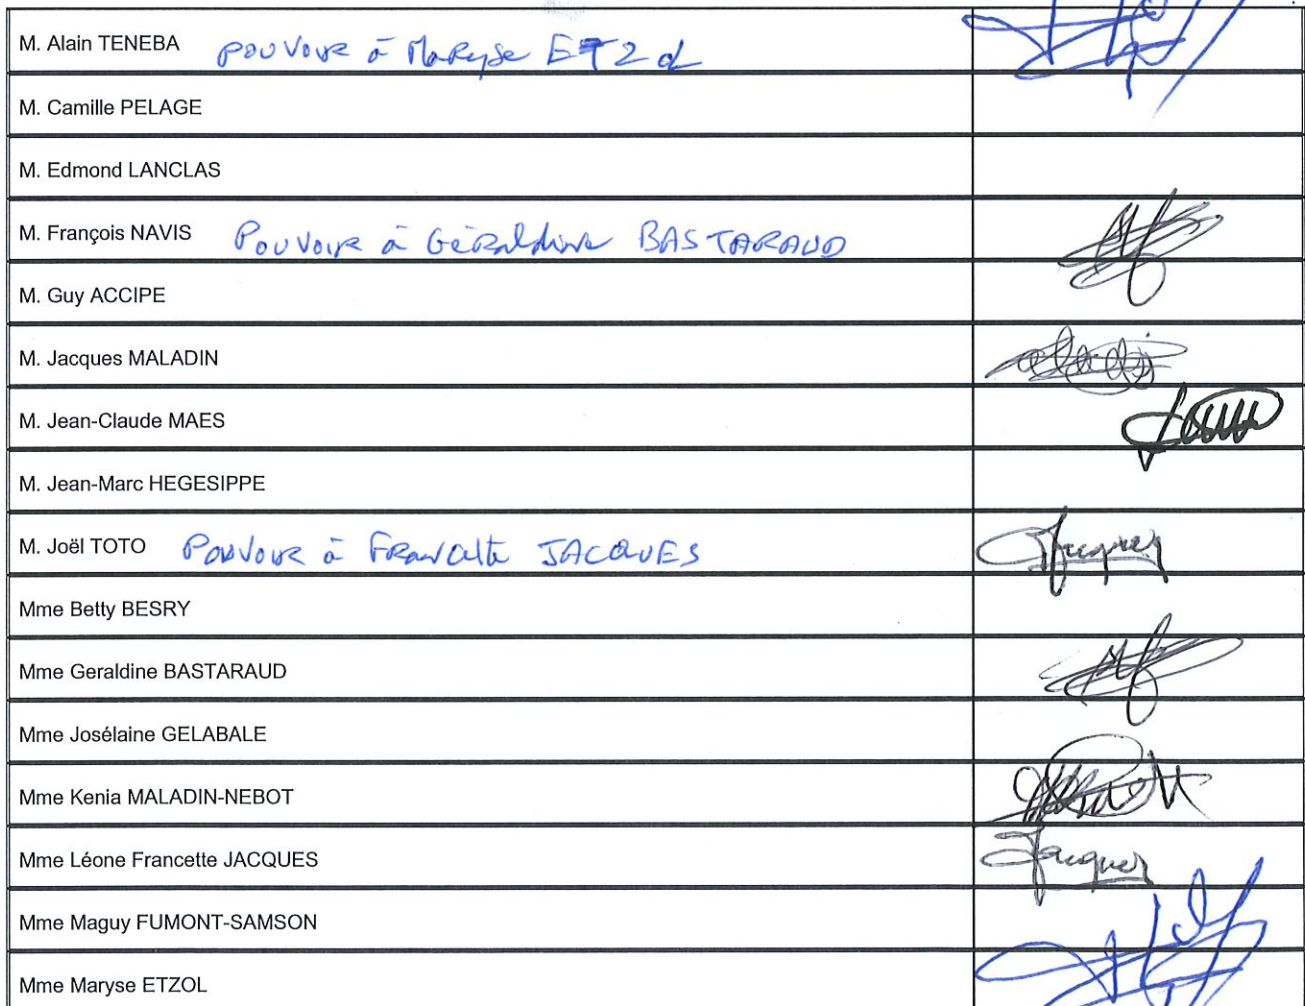 M. Alain TENEBA Pouvoir à Maryse ETZOL
M. Camille PELAGE
M. Edmond LANCLAS
M. François NAVIS Pouvoir à Géraldine BASTARAUD
M. Guy ACCIPE
M. Jacques MALADIN
M. Jean-Claude MAES
M. Jean-Marc HEGESIPPE
M. Joël TOTO Pouvoir à Francette JACQUES
Jacques
Mme Betty BESRY
Mme Geraldine BASTARAUD
Mme Josélaine GELABALE
Mme Kenia MALADIN-NEBOT
Mme Léone Francette JACQUES
Jacques
Mme Maguy FUMONT-SAMSON
Mme Maryse ETZOL